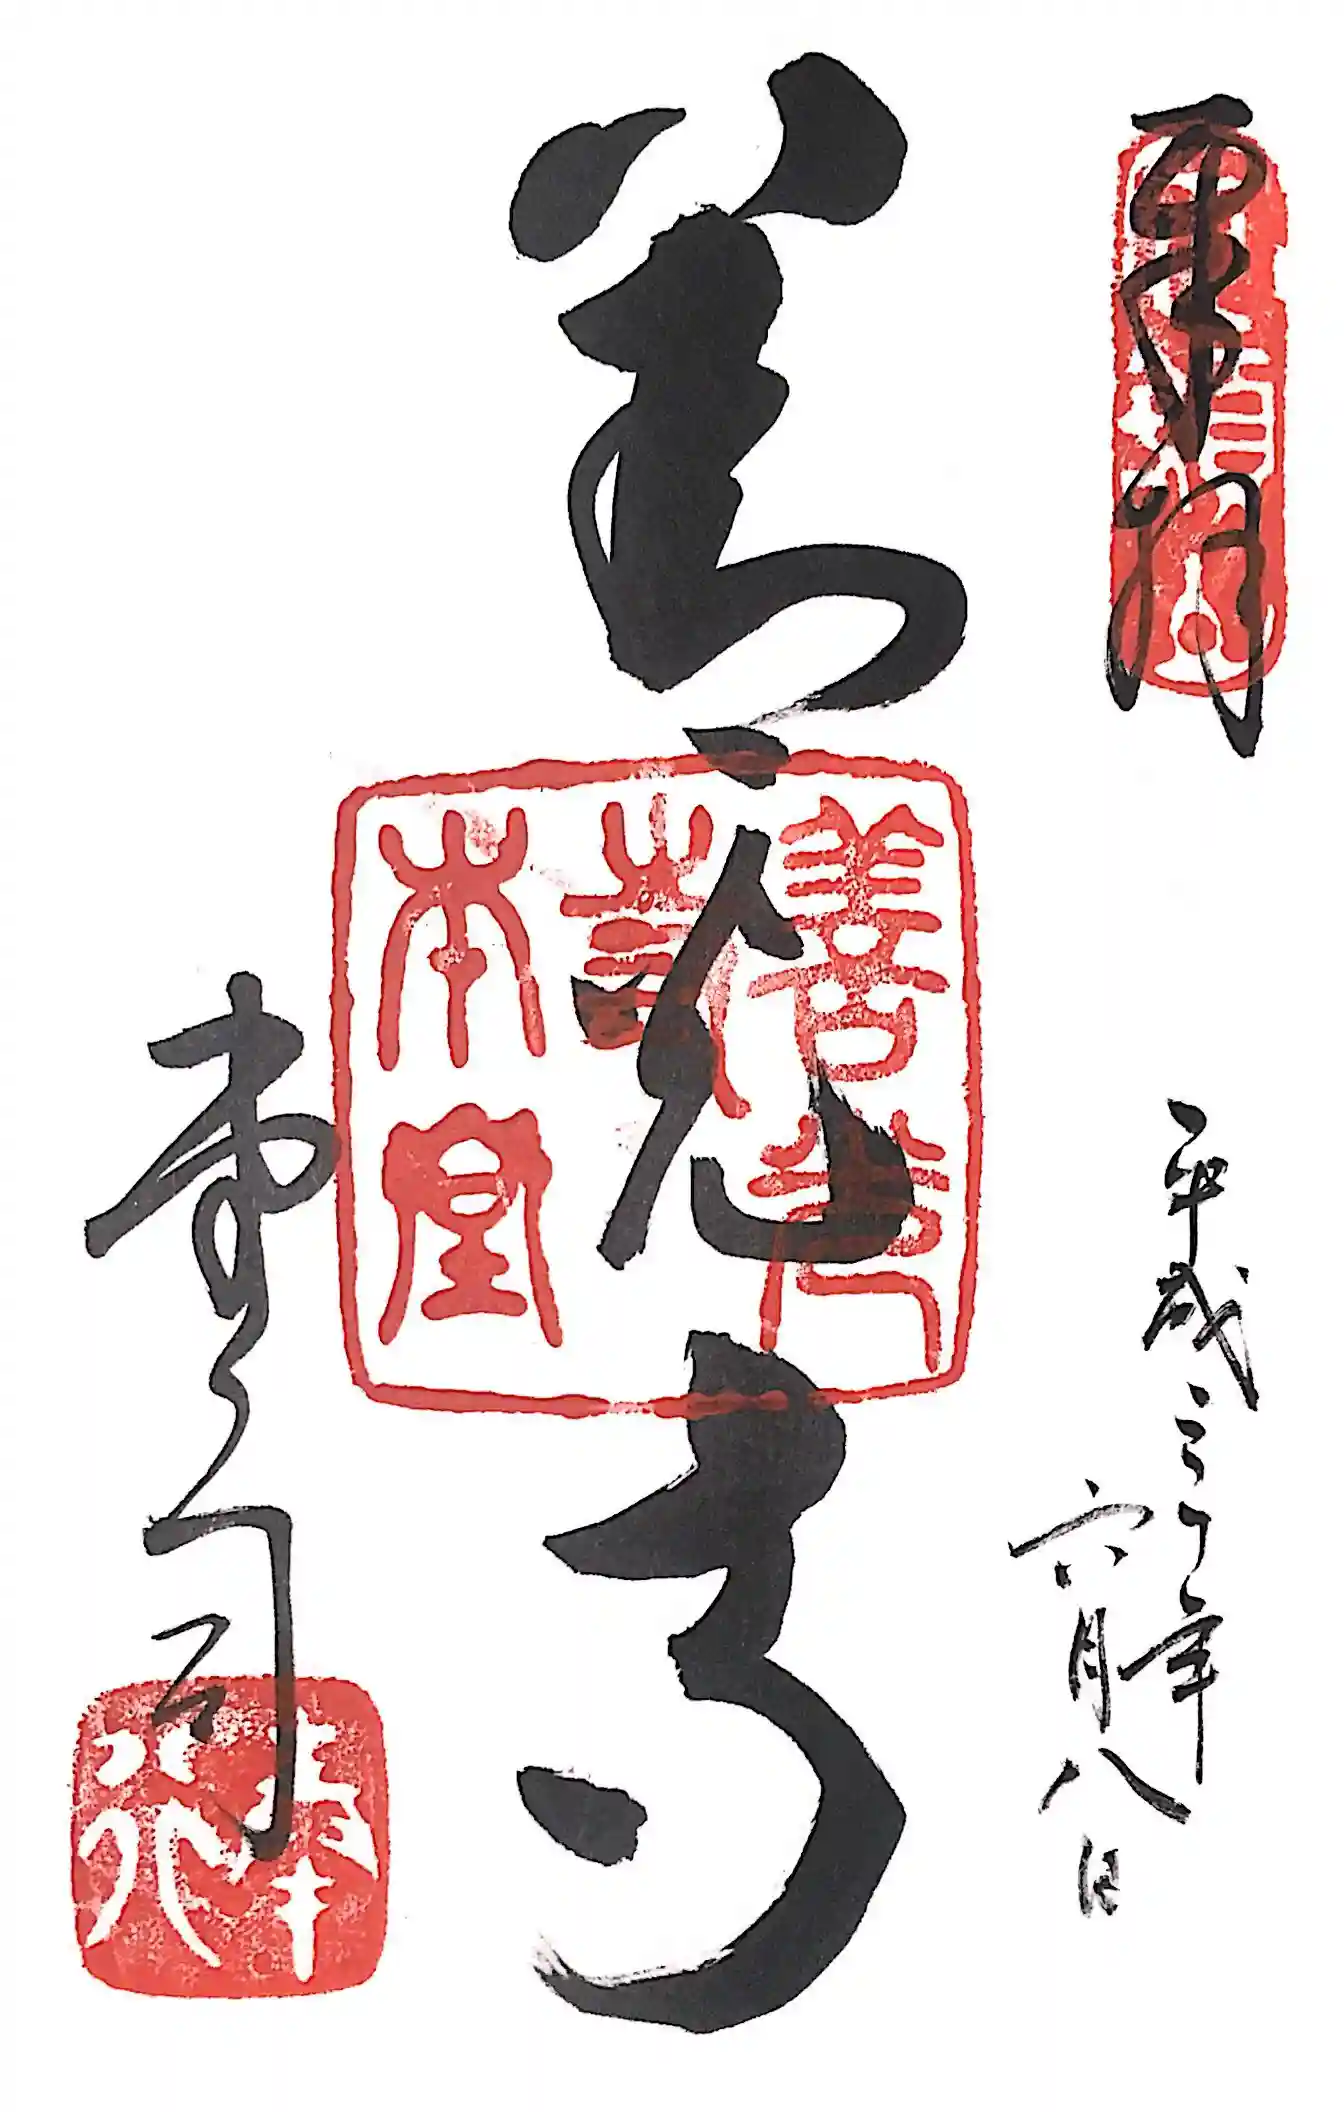 奉拝
平成三十年
六月八日
善光寺
善光
寺
本堂
堂司